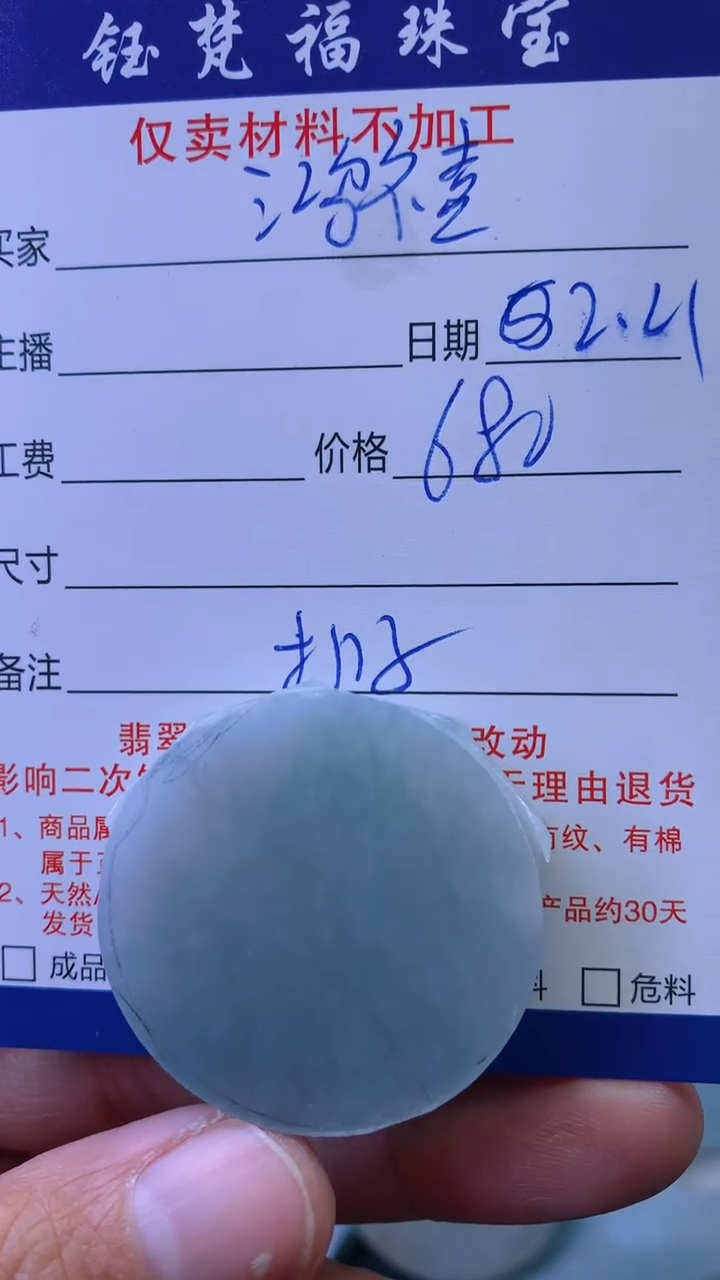 钰梵福珠宝
仅卖材料不加工
买家
主播 日期 2.21
工费 价格 680
尺寸
备注 扣子
翡翠 改动
影响二次 无理由退货
1、商品属 有纹、有棉
属于
2、天然 产品约30天
发货
成品 料 危料